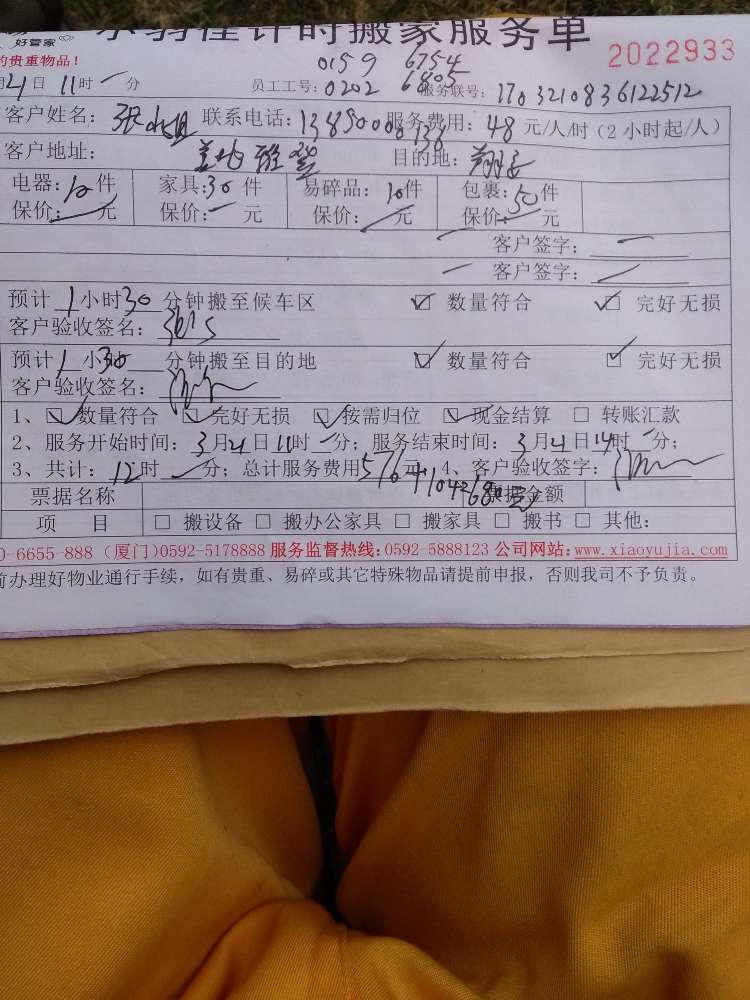 好管家 计时搬家服务单
2022933
的贵重物品！
0159 6754
月21日11时一分 员工工号：0202 6805 服务联号：1703210836122512
客户姓名：张小姐 联系电话：服务费用：48元/人/时（2小时起/人）
客户地址： 目的地：翔安
电器：10件 家具：30件 易碎品：10件 包裹：50件
保价：一元 保价：一元 保价：一元 保价：一元
客户签字：
客户签字：
预计1小时30分钟搬至候车区 ☑ 数量符合 ☑ 完好无损
客户验收签名：
预计1小时30分钟搬至目的地 ☑ 数量符合 ☑ 完好无损
客户验收签名：
1、☑数量符合 ☑完好无损 ☑按需归位 ☑现金结算 □ 转账汇款
2、服务开始时间：3月21日11时一分；服务结束时间：3月21日14时一分；
3、共计：12时一分；总计服务费用576元 4、客户验收签字：
票据名称 票据金额
项 目 □ 搬设备 □ 搬办公家具 □ 搬家具 □ 搬书 □ 其他：
0-6655-888（厦门）0592-5178888 服务监督热线：0592-5888123 公司网站：www.xiaoyujia.com
前办理好物业通行手续，如有贵重、易碎或其它特殊物品请提前申报，否则我司不予负责。